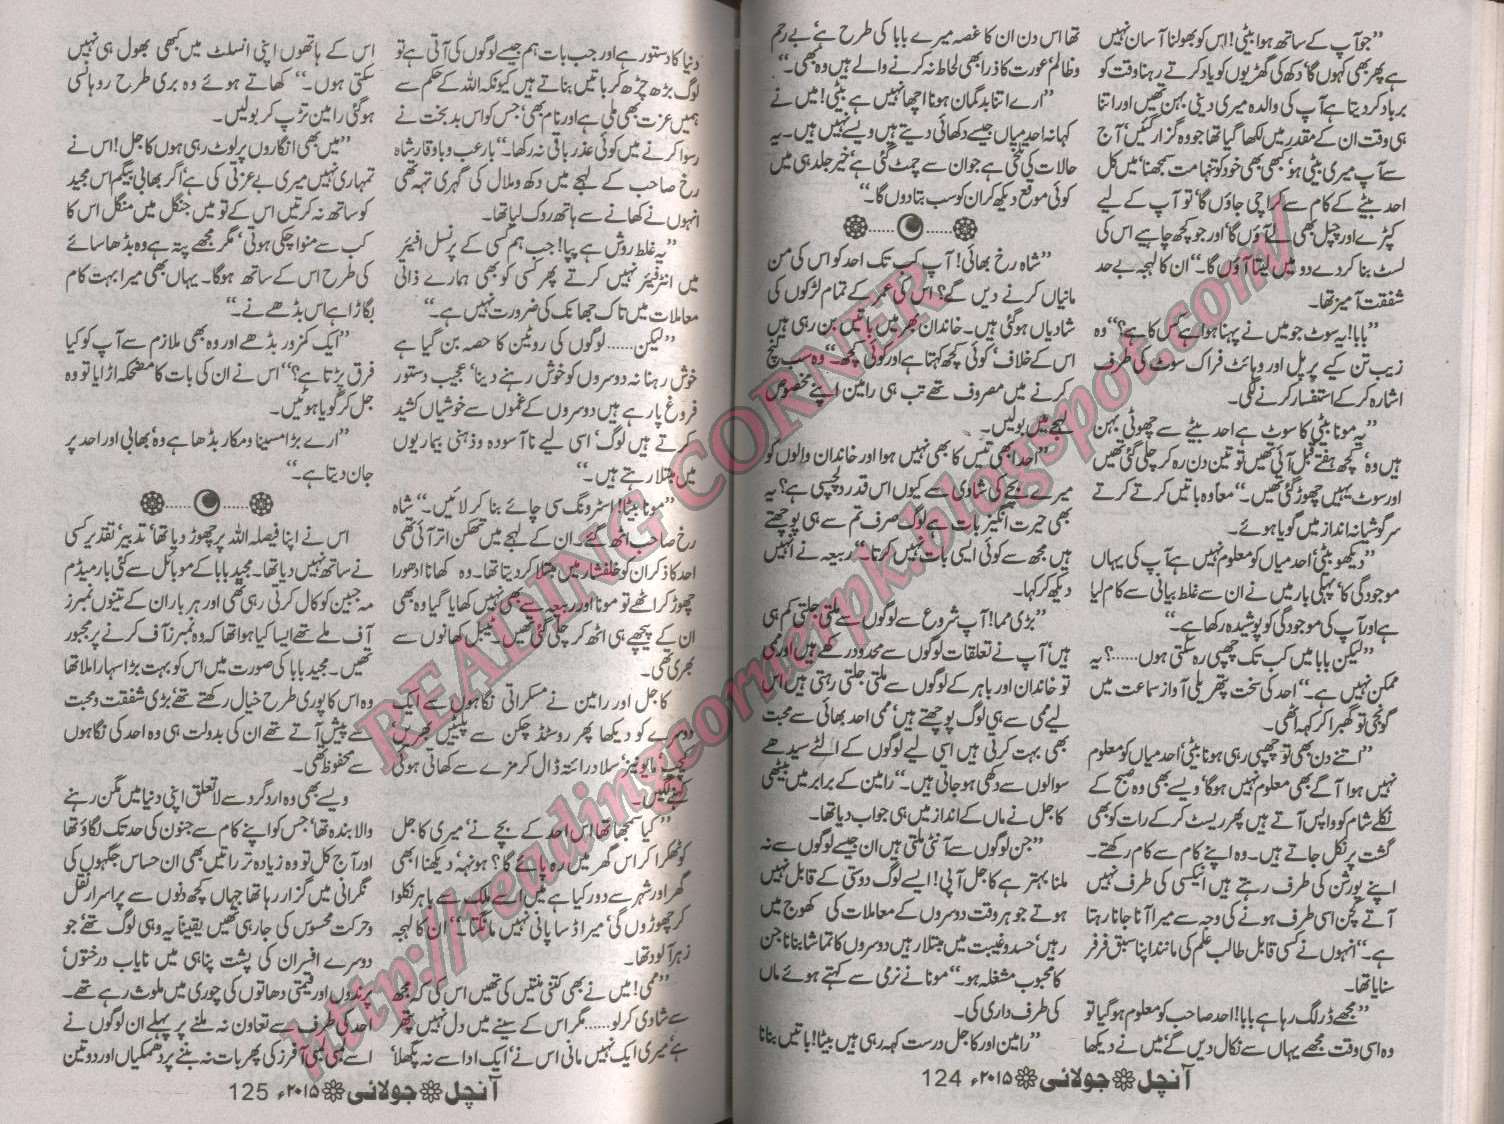 ”جو آپ کے ساتھ ہوا بیٹی! اس کو بھولنا آسان نہیں
ہے پھر بھی کہوں گا‘ دکھ کی گھڑیوں کو یاد کرتے رہنا وقت کو
برباد کردیتا ہے آپ کی والدہ میری دینی بہن تھیں اور اتنا
ہی وقت ان کے مقدر میں لکھا گیا تھا جو وہ گزار گئیں‘ آج
سے آپ میری بیٹی ہو‘ کبھی بھی خود کو تنہا مت سمجھنا‘ میں کل
احد بیٹے کے کام سے کراچی جاؤں گا‘ تو آپ کے لیے
کپڑے اور چپل بھی لے آؤں گا‘ اور جو کچھ چاہیے اس کی
لسٹ بنا کر دے دو میں لیتا آؤں گا۔“ ان کا لہجہ بے حد
شفقت آمیز تھا۔
”بابا! یہ سوٹ جو میں نے پہنا ہوا ہے کس کا ہے؟“ وہ
زیب تن کیے پرپل اور وہائٹ فراک سوٹ کی طرف
اشارہ کرکے استفسار کرنے لگی۔
”یہ مونا بیٹی کا سوٹ ہے احد بیٹے سے چھوٹی بہن
ہیں وہ‘ کچھ ہفتے قبل آئی تھیں تو تین دن رہ کر چلی گئی تھیں
اور سوٹ یہیں چھوڑ گئی تھیں۔“ معاً وہ باتیں کرتے کرتے
سرگوشیانہ انداز میں گویا ہوئے۔
”دیکھو بیٹی‘ احد میاں کو معلوم نہیں ہے آپ کی یہاں
موجودگی کا‘ پہلی بار میں نے ان سے غلط بیانی سے کام لیا
ہے اور آپ کی موجودگی کو پوشیدہ رکھا ہے۔“
”لیکن بابا میں کب تک چھپی رہ سکتی ہوں......؟ یہ
ممکن نہیں ہے۔“ احد کی سخت پتھریلی آواز سماعت میں
گونجی تو گھبرا کر کہہ اٹھی۔
”اتنے دن بھی تو چھپی رہی ہونا بیٹی‘ احد میاں کو معلوم
نہیں ہوا آگے بھی معلوم نہیں ہوگا‘ ویسے بھی وہ صبح کے
نکلے شام کو واپس آتے ہیں پھر ریسٹ کرکے رات کو بھی
گشت پر نکل جاتے ہیں۔ وہ اپنے کام سے کام رکھتے۔
اپنے پورشن کی طرف رہتے ہیں انیکسی کی طرف نہیں
آتے کچن اسی طرف ہونے کی وجہ سے میرا آنا جانا رہتا
ہے۔“ انہوں نے کسی قابل طالب علم کی مانند اپنا سبق فرفر
سنایا تھا۔
”مجھے ڈر لگ رہا ہے بابا! احد صاحب کو معلوم ہوگیا تو
وہ اسی وقت مجھے یہاں سے نکال دیں گے‘ میں نے دیکھا
تھا اس دن ان کا غصہ میرے بابا کی طرح ہے‘ بے رحم
و ظالم‘ عورت کا ذرا بھی لحاظ نہ کرنے والے ہیں وہ بھی۔“
”ارے اتنا بدگمان ہونا اچھا نہیں ہے بیٹی! میں نے
کہا نہ احد میاں جیسے دکھائی دیتے ہیں ویسے نہیں ہیں۔ یہ
حالات کی تلخی ہے جو ان سے چمٹ گئی ہے‘ خیر جلد ہی میں
کوئی موقع دیکھ کر ان کو سب بتادوں گا۔“
”شاہ رخ بھائی! آپ کب تک احد کو اس کی من
مانیاں کرنے دیں گے؟ اس کی عمر کے تمام لڑکوں کی
شادیاں ہوگئی ہیں۔ خاندان بھر میں باتیں بن رہی ہیں
اس کے خلاف‘ کوئی کچھ کہتا ہے اور کوئی کچھ۔“ وہ سب لنچ
کرنے میں مصروف تھے تب ہی رامین اپنے مخصوص
لہجے میں بولیں۔
”احد ابھی تیس کا بھی نہیں ہوا اور خاندان والوں کو
میرے بچے کی شادی سے کیوں اس قدر دلچسپی ہے؟ یہ
بھی حیرت انگیز بات ہے لوگ صرف تم سے ہی پوچھتے
ہیں مجھ سے کوئی ایسی بات نہیں کرتا۔“ ربیعہ نے انہیں
دیکھ کر کہا۔
”بڑی مما! آپ شروع سے لوگوں سے ملتی جلتی کم ہی
ہیں‘ آپ نے تعلقات لوگوں سے محدود رکھے ہیں اور ممی
تو خاندان اور باہر کے لوگوں سے ملتی جلتی رہتی ہیں اس
لیے ممی سے ہی لوگ پوچھتے ہیں‘ ممی احد بھائی سے محبت
بھی بہت کرتی ہیں اسی لیے لوگوں کے الٹے سیدھے
سوالوں سے دکھی ہوجاتی ہیں۔“ رامین کے برابر میں بیٹھی
کاجل نے ماں کے انداز میں ہی جواب دیا تھا۔
”جن لوگوں سے آنٹی ملتی ہیں ان جیسے لوگوں سے نہ
ملنا بہتر ہے کاجل آپی! ایسے لوگ دوستی کے قابل نہیں
ہوتے جو ہر وقت دوسروں کے معاملات کی کھوج میں
رہیں‘ حسد و غیبت میں مبتلا رہیں دوسروں کا تماشا بنانا جن
کا محبوب مشغلہ ہو۔“ مونا نے نرمی سے کہتے ہوئے ماں
کی طرف داری کی۔
”رامین اور کاجل درست کہہ رہی ہیں بیٹا! باتیں بنانا
آنچل جولائی ۲۰۱۵ء 124
دنیا کا دستور ہے اور جب بات ہم جیسے لوگوں کی آتی ہے تو
لوگ بڑھ چڑھ کر باتیں بناتے ہیں کیونکہ اللہ کے حکم سے
ہمیں عزت بھی ملی ہے اور نام بھی‘ جس کو اس بدبخت نے
رسوا کرنے میں کوئی عذر باقی نہ رکھا۔“ بارعب و باوقار شاہ
رخ صاحب کے لہجے میں دکھ و ملال کی گہری تہہ تھی
انہوں نے کھانے سے ہاتھ روک لیا تھا۔
”یہ غلط روش ہے پپا! جب ہم کسی کے پرنسل افیئر
میں انٹرفیئر نہیں کرتے پھر کسی کو بھی ہمارے ذاتی
معاملات میں تاک جھانک کی ضرورت نہیں ہے۔“
”لیکن...... لوگوں کی روٹین کا حصہ بن گیا ہے
خوش رہنا نہ دوسروں کو خوش رہنے دینا‘ عجیب دستور
فروغ پا رہے ہیں دوسروں کے غموں سے خوشیاں کشید
کرتے ہیں لوگ‘ اسی لیے ناآسودہ و ذہنی بیماریوں
میں مبتلا رہتے ہیں۔“
”مونا بیٹا! اسٹرونگ سی چائے بنا کر لائیں۔“ شاہ
رخ صاحب اٹھ گئے۔ ان کے لہجے میں تھکن اتر آئی تھی
احد کا ذکر ان کو خلفشار میں مبتلا کردیتا تھا۔ وہ کھانا ادھورا
چھوڑ کر اٹھے تو مونا اور ربیعہ سے بھی نہیں کھایا گیا وہ بھی
ان کے پیچھے ہی اٹھ کر چلی گئی تھیں۔ ٹیبل کھانوں سے
بھری تھی۔
کاجل اور رامین نے مسکراتی نگاہوں سے ایک
دوسرے کو دیکھا پھر روسٹڈ چکن سے پلیٹیں بھریں‘
کیچپ‘ مایونیز‘ سلاد رائتہ ڈال کر مزے سے کھاتی ہوئی
کہنے لگیں۔
”کیا سمجھا تھا اس احد کے بچے نے‘ میری کاجل
کو ٹھکرا کر اس گھر میں رہ پائے گا؟ ہونہہ‘ دیکھنا ابھی
گھر اور شہر سے دور کیا ہے میں اسے ملک سے باہر نکلوا
کر چھوڑوں گی‘ میرا ڈسا پانی نہیں مانگتا۔“ ان کا لہجہ
زہر آلود تھا۔
”ممی! میں نے بھی کتنی منتیں کی تھیں اس کی کہ مجھ
سے شادی کرلو...... مگر اس کے سینے میں دل نہیں پتھر
ہے‘ میری ایک نہیں مانی اس نے‘ ایک ادا سے نہ پگھلا‘
اس کے ہاتھوں اپنی انسلٹ میں کبھی بھول ہی نہیں
سکتی ہوں۔“ کھاتے ہوئے وہ بری طرح روہانسی
ہوگئی رامین تڑپ کر بولیں۔
”میں بھی انگاروں پر لوٹ رہی ہوں کاجل! اس نے
تمہاری نہیں میری بے عزتی کی ہے‘ اگر بھابی بیگم اس مجید
کو ساتھ نہ کرتیں اس کے تو میں جنگل میں منگل اس کا
کب سے منوا چکی ہوتی‘ مگر مجھے پتہ ہے وہ بڈھا سائے
کی طرح اس کے ساتھ ہوگا۔ یہاں بھی میرا بہت کام
بگاڑا ہے اس بڈھے نے۔“
”ایک کمزور بڈھے اور وہ بھی ملازم سے آپ کو کیا
فرق پڑتا ہے؟“ اس نے ان کی بات کا مضحکہ اڑایا تو وہ
جل کر گویا ہوئیں۔
”ارے بڑا مسینا و مکار بڈھا ہے وہ‘ بھابی اور احد پر
جان دیتا ہے۔“
اس نے اپنا فیصلہ اللہ پر چھوڑ دیا تھا‘ تدبیر‘ تقدیر کسی
نے ساتھ نہیں دیا تھا۔ مجید بابا کے موبائل سے کئی بار میڈم
مہ جبین کو کال کرتی رہی تھی اور ہر بار ان کے تینوں نمبرز
آف ملے تھے ایسا کیا ہوا تھا کہ وہ نمبرز آف کرنے پر مجبور
تھیں۔ مجید بابا کی صورت میں اس کو بہت بڑا سہارا ملا تھا
وہ اس کا پوری طرح خیال رکھتے تھے‘ بڑی شفقت و محبت
سے پیش آتے تھے ان کی بدولت ہی وہ احد کی نگاہوں
سے محفوظ تھی۔
ویسے بھی وہ ارد گرد سے لاتعلق اپنی دنیا میں مگن رہنے
والا بندہ تھا‘ جس کو اپنے کام سے جنون کی حد تک لگاؤ تھا
اور آج کل تو وہ زیادہ تر راتیں بھی ان حساس جگہوں کی
نگرانی میں گزار رہا تھا جہاں کچھ دنوں سے پراسرار نقل
و حرکت محسوس کی جارہی تھیں یقیناً یہ وہی لوگ تھے‘ جو
دوسرے افسران کی پشت پناہی میں نایاب درختوں‘
پرندوں اور قیمتی دھاتوں کی چوری میں ملوث رہے تھے۔
احد کی طرف سے تعاون نہ ملنے پر پہلے ان لوگوں نے
اسے لمبی لمبی آفرز کی پھر بات نہ بننے پر دھمکیاں اور دو تین
آنچل جولائی ۲۰۱۵ء 125
READING CORNER
http://readingcornerpk.blogspot.com/